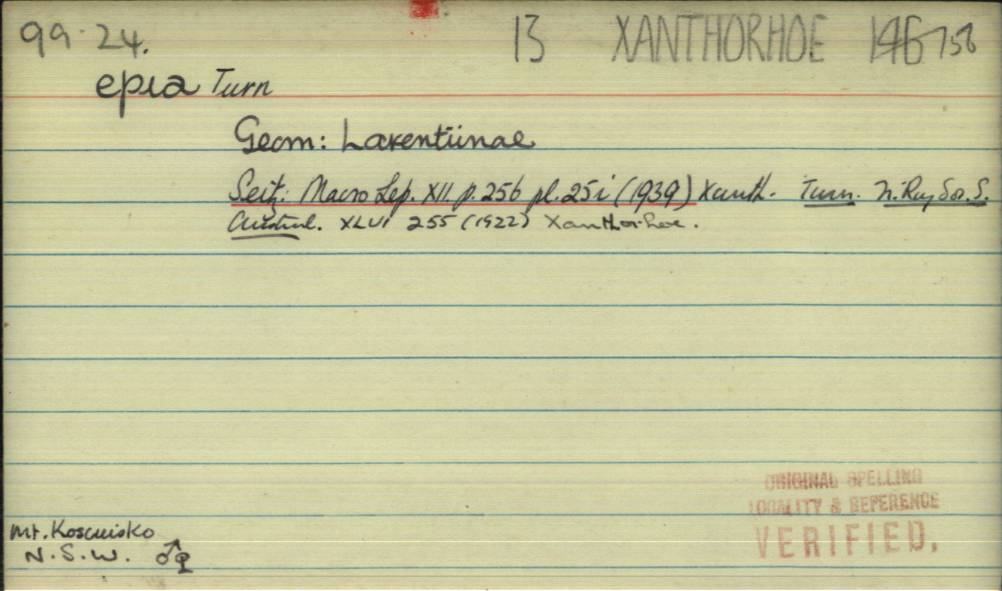 99.24. 13 XANTHORHOE 146 756
epia Turn
Geom: Larentiinae
Seitz: Macro Lep. XII. p. 256 pl. 25i (1939) Xanth. Turn. Soc. S.
Austral. XLVI 255 (1922) Xanthorhoe.
ORIGINAL SPELLING
LOCALITY & REFERENCE
VERIFIED.
Mt. Kosciusko
N.S.W. ♂♀